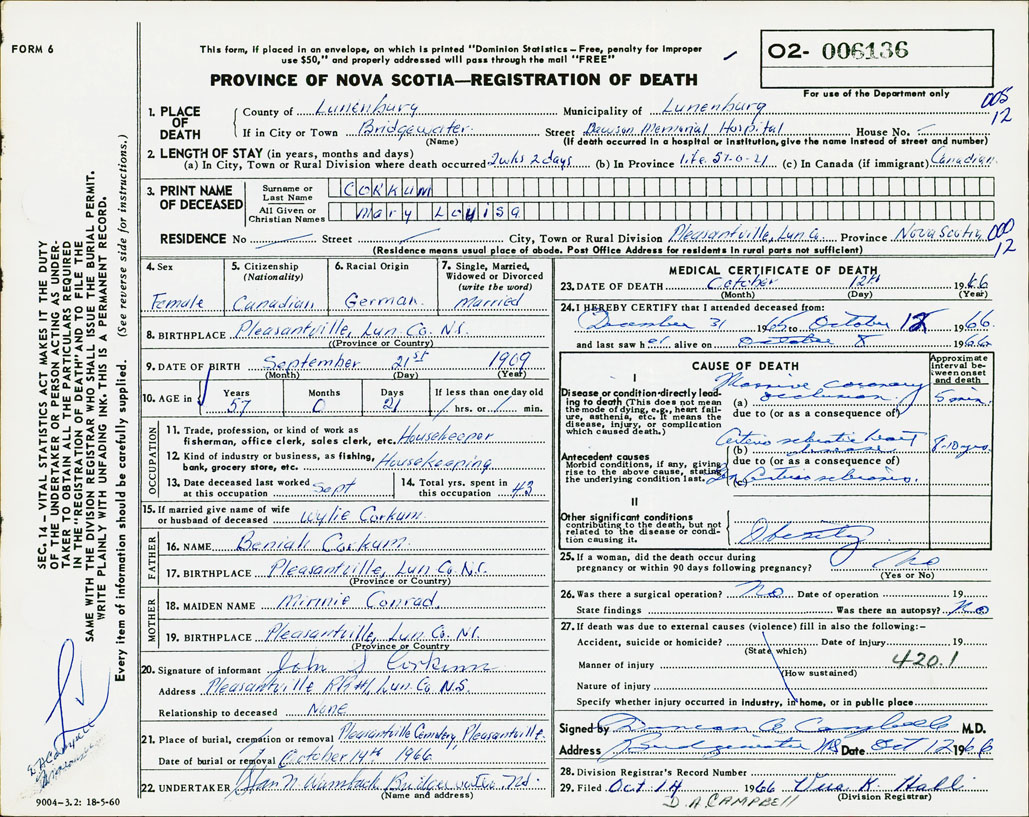 FORM 6
This form, if placed in an envelope, on which is printed "Dominion Statistics – Free, penalty for improper
use $50," and properly addressed will pass through the mail "FREE"
PROVINCE OF NOVA SCOTIA—REGISTRATION OF DEATH
O2- 006136
For use of the Department only
005
12
1. PLACE OF DEATH
County of Lunenburg Municipality of Lunenburg
If in City or Town Bridgewater Street Dawson Memorial Hospital House No. –
(Name) (If death occurred in a hospital or institution, give the name instead of street and number)
2. LENGTH OF STAY (in years, months and days)
(a) In City, Town or Rural Division where death occurred 2wks 2days (b) In Province life 57-0-21 (c) In Canada (if immigrant) Canadian
3. PRINT NAME OF DECEASED
Surname or Last Name CORKUM
All Given or Christian Names Mary Louisa
RESIDENCE No Street City, Town or Rural Division Pleasantville, Lun Co. Province Nova Scotia
000
12
(Residence means usual place of abode. Post Office Address for residents in rural parts not sufficient)
4. Sex
Female
5. Citizenship
(Nationality)
Canadian
6. Racial Origin
German
7. Single, Married, Widowed or Divorced
(write the word)
Married
8. BIRTHPLACE Pleasantville, Lun. Co. N.S.
(Province or Country)
9. DATE OF BIRTH September 21st 1909
(Month) (Day) (Year)
10. AGE in
Years Months Days If less than one day old
57 0 21 hrs. or min.
OCCUPATION
11. Trade, profession, or kind of work as
fisherman, office clerk, sales clerk, etc. Housekeeper
12. Kind of industry or business, as fishing,
bank, grocery store, etc. Housekeeping
13. Date deceased last worked at this occupation Sept
14. Total yrs. spent in this occupation 43
15. If married give name of wife
or husband of deceased Wylie Corkum
FATHER
16. NAME Beniah Corkum
17. BIRTHPLACE Pleasantville, Lun Co N.S.
(Province or Country)
MOTHER
18. MAIDEN NAME Minnie Conrad
19. BIRTHPLACE Pleasantville, Lun Co N.S.
(Province or Country
20. Signature of informant John S Corkum
Address Pleasantville RR#1, Lun. Co N.S.
Relationship to deceased None
21. Place of burial, cremation or removal Pleasantville Cemetery, Pleasantville
Date of burial or removal October 14th 1966
22. UNDERTAKER Bridgewater
(Name and address)
9004-3.2: 18-5-60
MEDICAL CERTIFICATE OF DEATH
23. DATE OF DEATH October 12th 1966
(Month) (Day) (Year)
24. I HEREBY CERTIFY that I attended deceased from:
December 31 1965 to October 12 1966
and last saw her alive on October 8 1966
CAUSE OF DEATH
Approximate interval between onset and death
I
Disease or condition directly leading to death (This does not mean the mode of dying, e.g., heart failure, asthenia, etc. It means the disease, injury, or complication which caused death.)
(a) Massive coronary occlusion 5 min.
due to (or as a consequence of)
Antecedent causes
Morbid conditions, if any, giving rise to the above cause, stating the underlying condition last.
(b) Arteriosclerotic heart disease 8-10 yrs.
due to (or as a consequence of)
(c) Arteriosclerosis
II
Other significant conditions
contributing to the death, but not related to the disease or condition causing it.
Obesity
25. If a woman, did the death occur during
pregnancy or within 90 days following pregnancy? No
(Yes or No)
26. Was there a surgical operation? No Date of operation 19
State findings Was there an autopsy? No
27. If death was due to external causes (violence) fill in also the following:–
Accident, suicide or homicide? Date of injury 19
(State which)
Manner of injury 420.1
(How sustained)
Nature of injury
Specify whether injury occurred in industry, in home, or in public place
Signed by Duncan B Campbell M.D.
Address Bridgewater NS Date Oct 12 1966
28. Division Registrar's Record Number
29. Filed Oct 14 1966 Vera K. Hall
(Division Registrar)
D. A. CAMPBELL
SEC. 14 – VITAL STATISTICS ACT MAKES IT THE DUTY
OF THE UNDERTAKER OR PERSON ACTING AS UNDER-
TAKER TO OBTAIN ALL THE PARTICULARS REQUIRED
IN THE "REGISTRATION OF DEATH" AND TO FILE THE
SAME WITH THE DIVISION REGISTRAR WHO SHALL ISSUE THE BURIAL PERMIT.
WRITE PLAINLY WITH UNFADING INK. THIS IS A PERMANENT RECORD.
Every item of information should be carefully supplied. (See reverse side for instructions.)